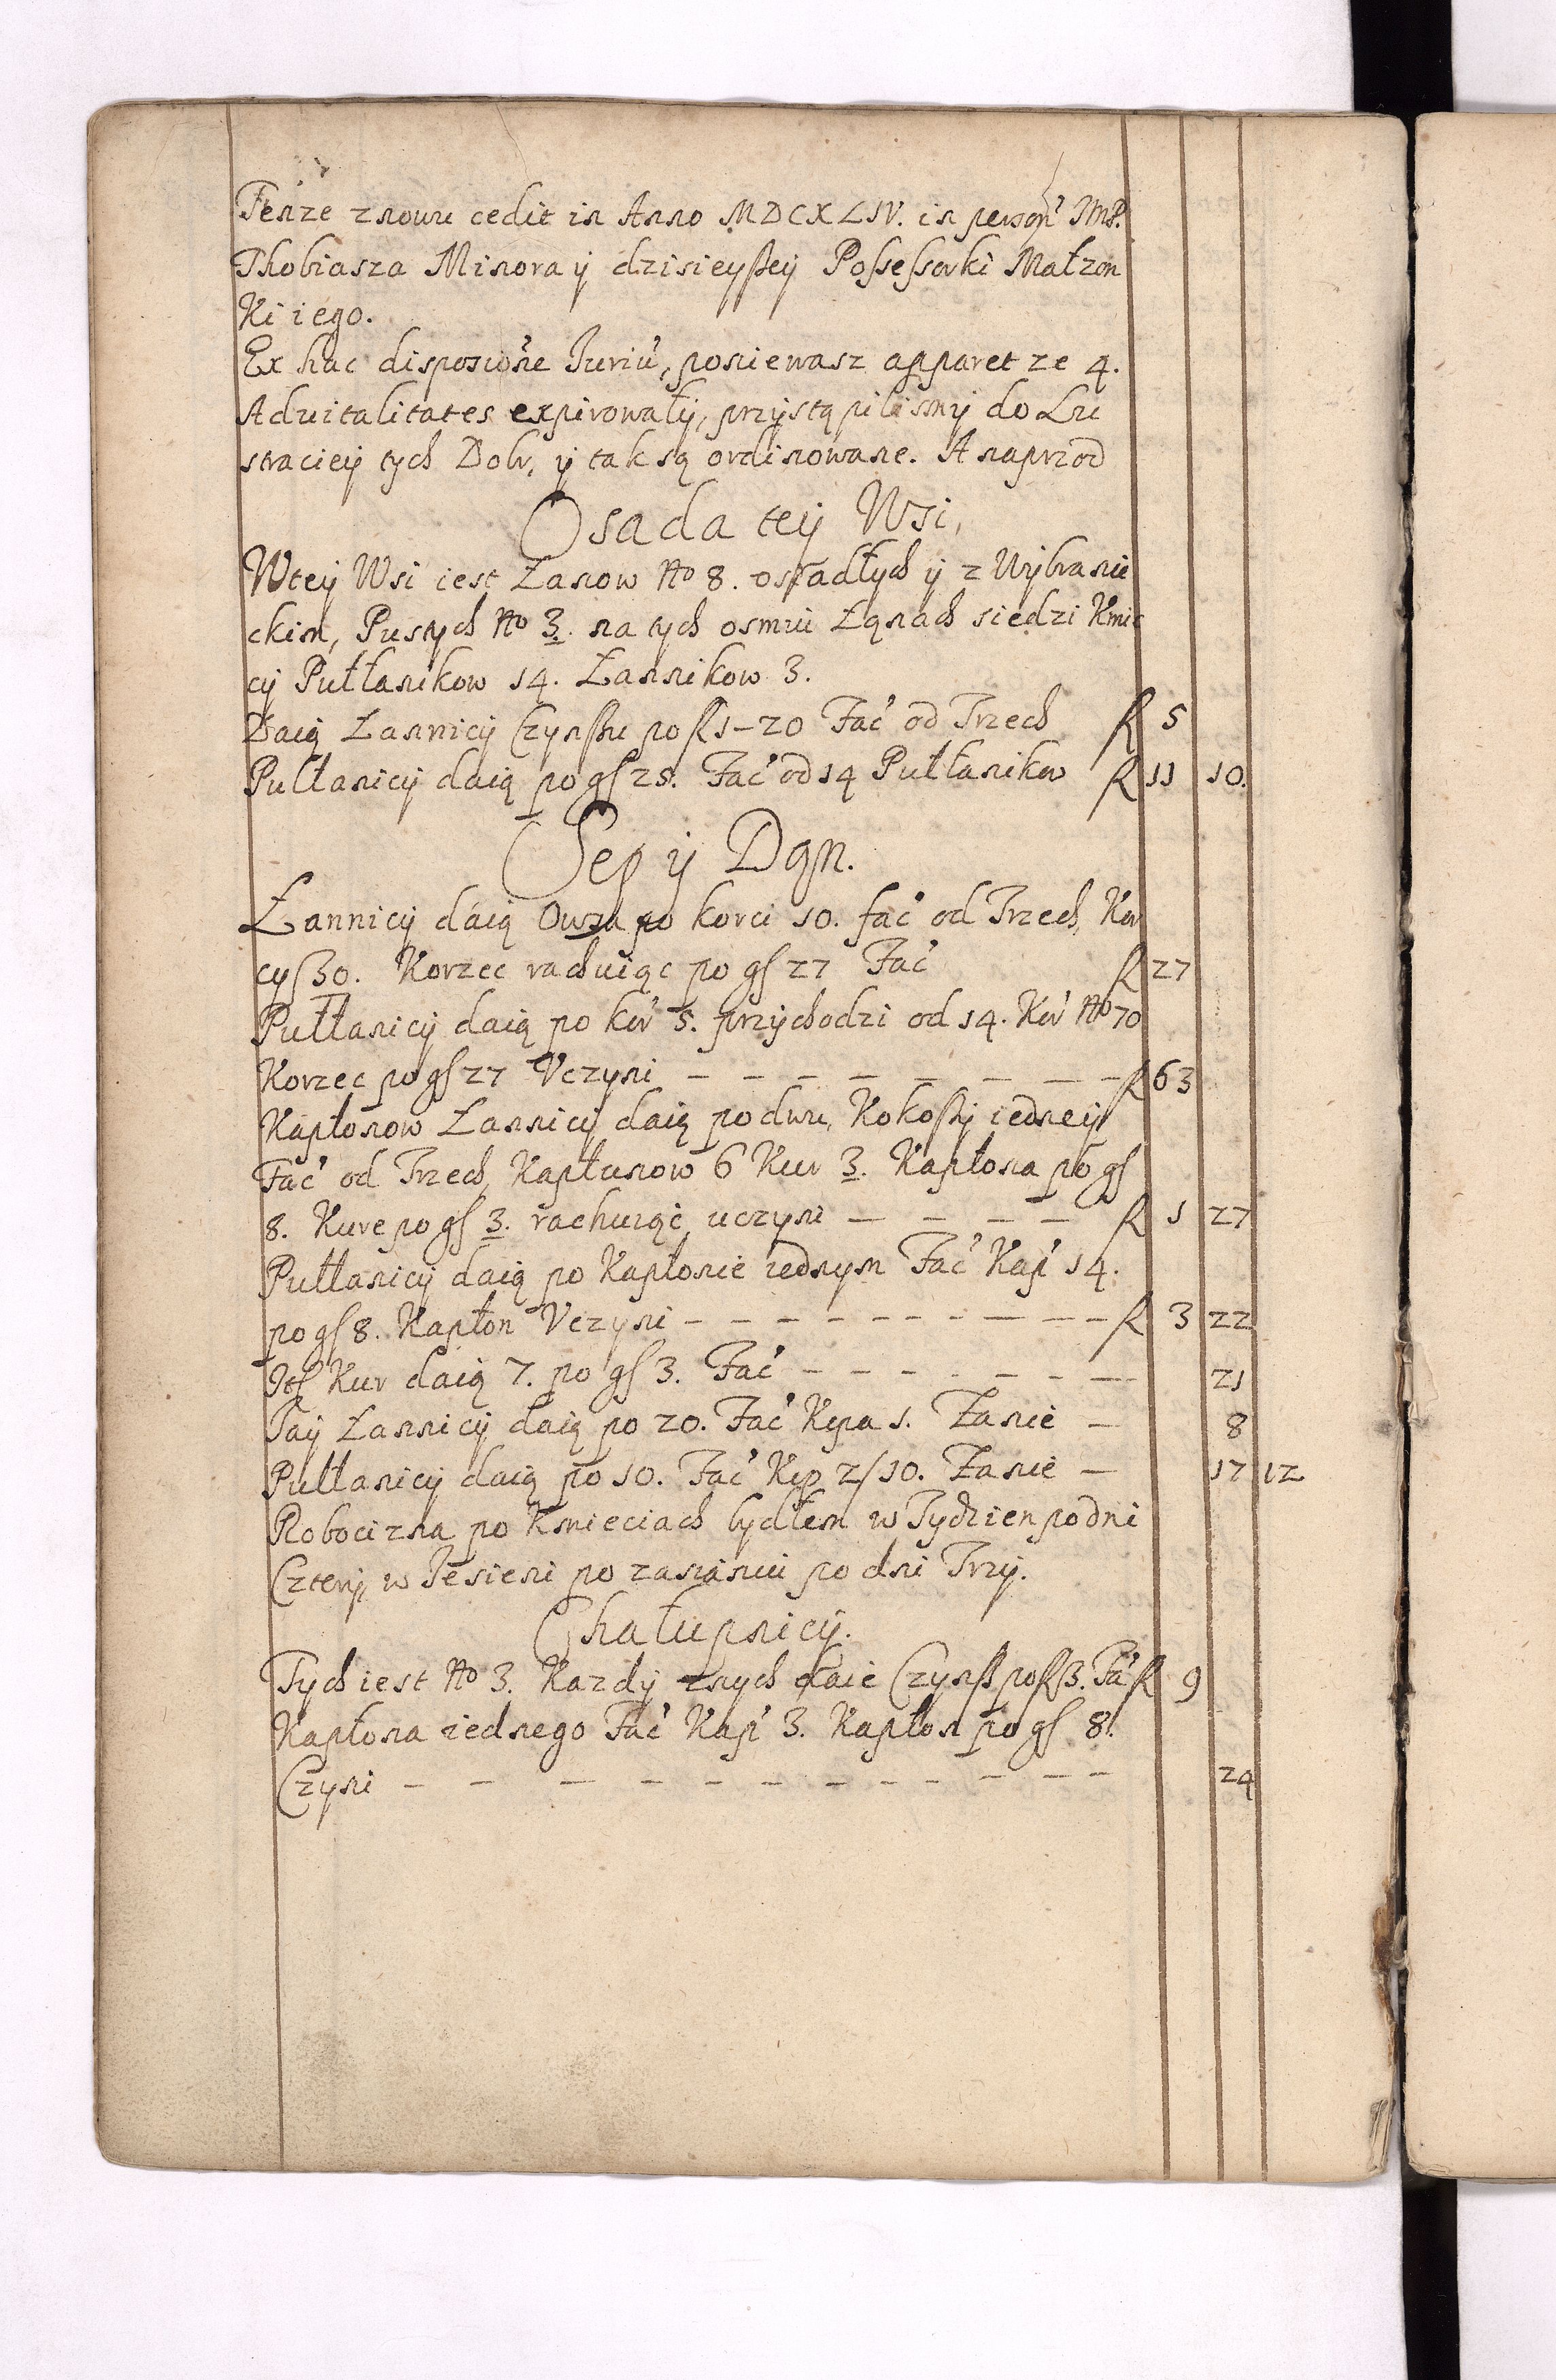 Tenze znowu cedit in Anno MDCXLIV. in person̄ JMP.
Thobiasza Minora ÿ dzisieyßeÿ Poßeßorki Małzon
Ki iego.
Ex hac disposićõne Iuriū, poniewasz apparet ze 4.
Aduitalitates expirowałÿ, przÿstąpilismÿ do Lu
straciey tych Dobr, ÿ tak są ordinowane. A naprzod
Osada teÿ Wsi,
Wteÿ Wsi iest Łanow No 8. osiadłÿch ÿ z Wÿbranie
ckim, Pustÿch No 3. na tÿch osmiu Łąnach siedzi Kmie
cÿ Pułłanikow 14. Łannikow 3.
Daią Łannicÿ Czynßu po fl 1-20 Fać od Trzech fl 5
Pułłanicÿ daią po gß 25. Fać od 14 Pułłanikow fl 11 10.
Sep ÿ Dan.
Łannicÿ daią Owsa po korci 10. fać od Trzech, Kor
cÿ 30. Korzec rachuiąc po gß 27 Fać fl 27
Pułłanicÿ daią po kor 5. przÿchodzi od 14. Kor No 70
Korzec po gß 27 Vczyni – – – – – – – – fl 63
Kapłonow Łannicÿ daią po dwu, Kokoßÿ iedneÿ
Fać od Trzech, Kapłunow 6 Kur 3. Kapłona po gß
8. Kure po gß 3. rachuiąc uczyni – – – – fl 1 27
Pułłanicÿ daią po Kapłonie iednym Fać Kap 14.
po gß 8. Kapłon Vczyni – – – – – – – – – – fl 3 22
Itß Kur daią 7. po gß 3. Fać – – – – – – – 21
Jaÿ Łannicÿ daią po 20. Fać Kopa 1. Za nie – 8
Pułłanicÿ daią po 10. Fać Kop 2/10. Za nie – 17 12
Robocizna po Kmieciach bydłem w Tydzien po dni
Czterÿ, w Jesieni po zasianiu po dni Trzÿ.
Chałupnicÿ.
Tych iest No 3. Kazdÿ znych daie Czynß po fl 3. Fać fl 9
Kapłona iednego Fać Kap 3. Kapłon po gß 8.
Czyni – – – – – – – – – – – – 24